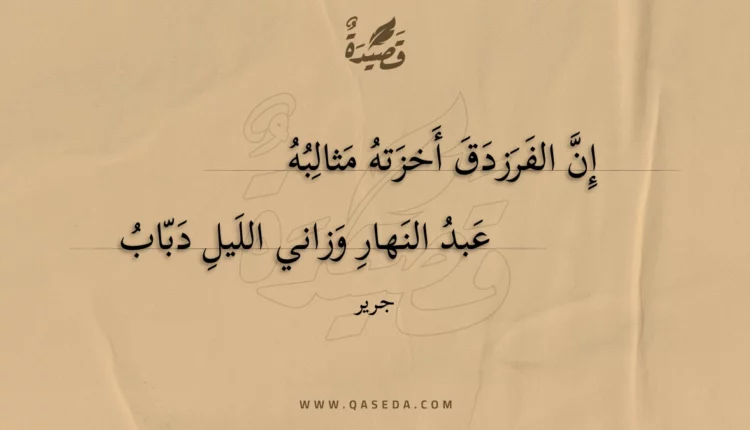 قَصِيْدَةٌ
إِنَّ الفَرَزدَقَ أَخزَتهُ مَثالِبُهُ
عَبدُ النَهارِ وَزاني اللَيلِ دَبّابُ
جرير
WWW.QASEDA.COM